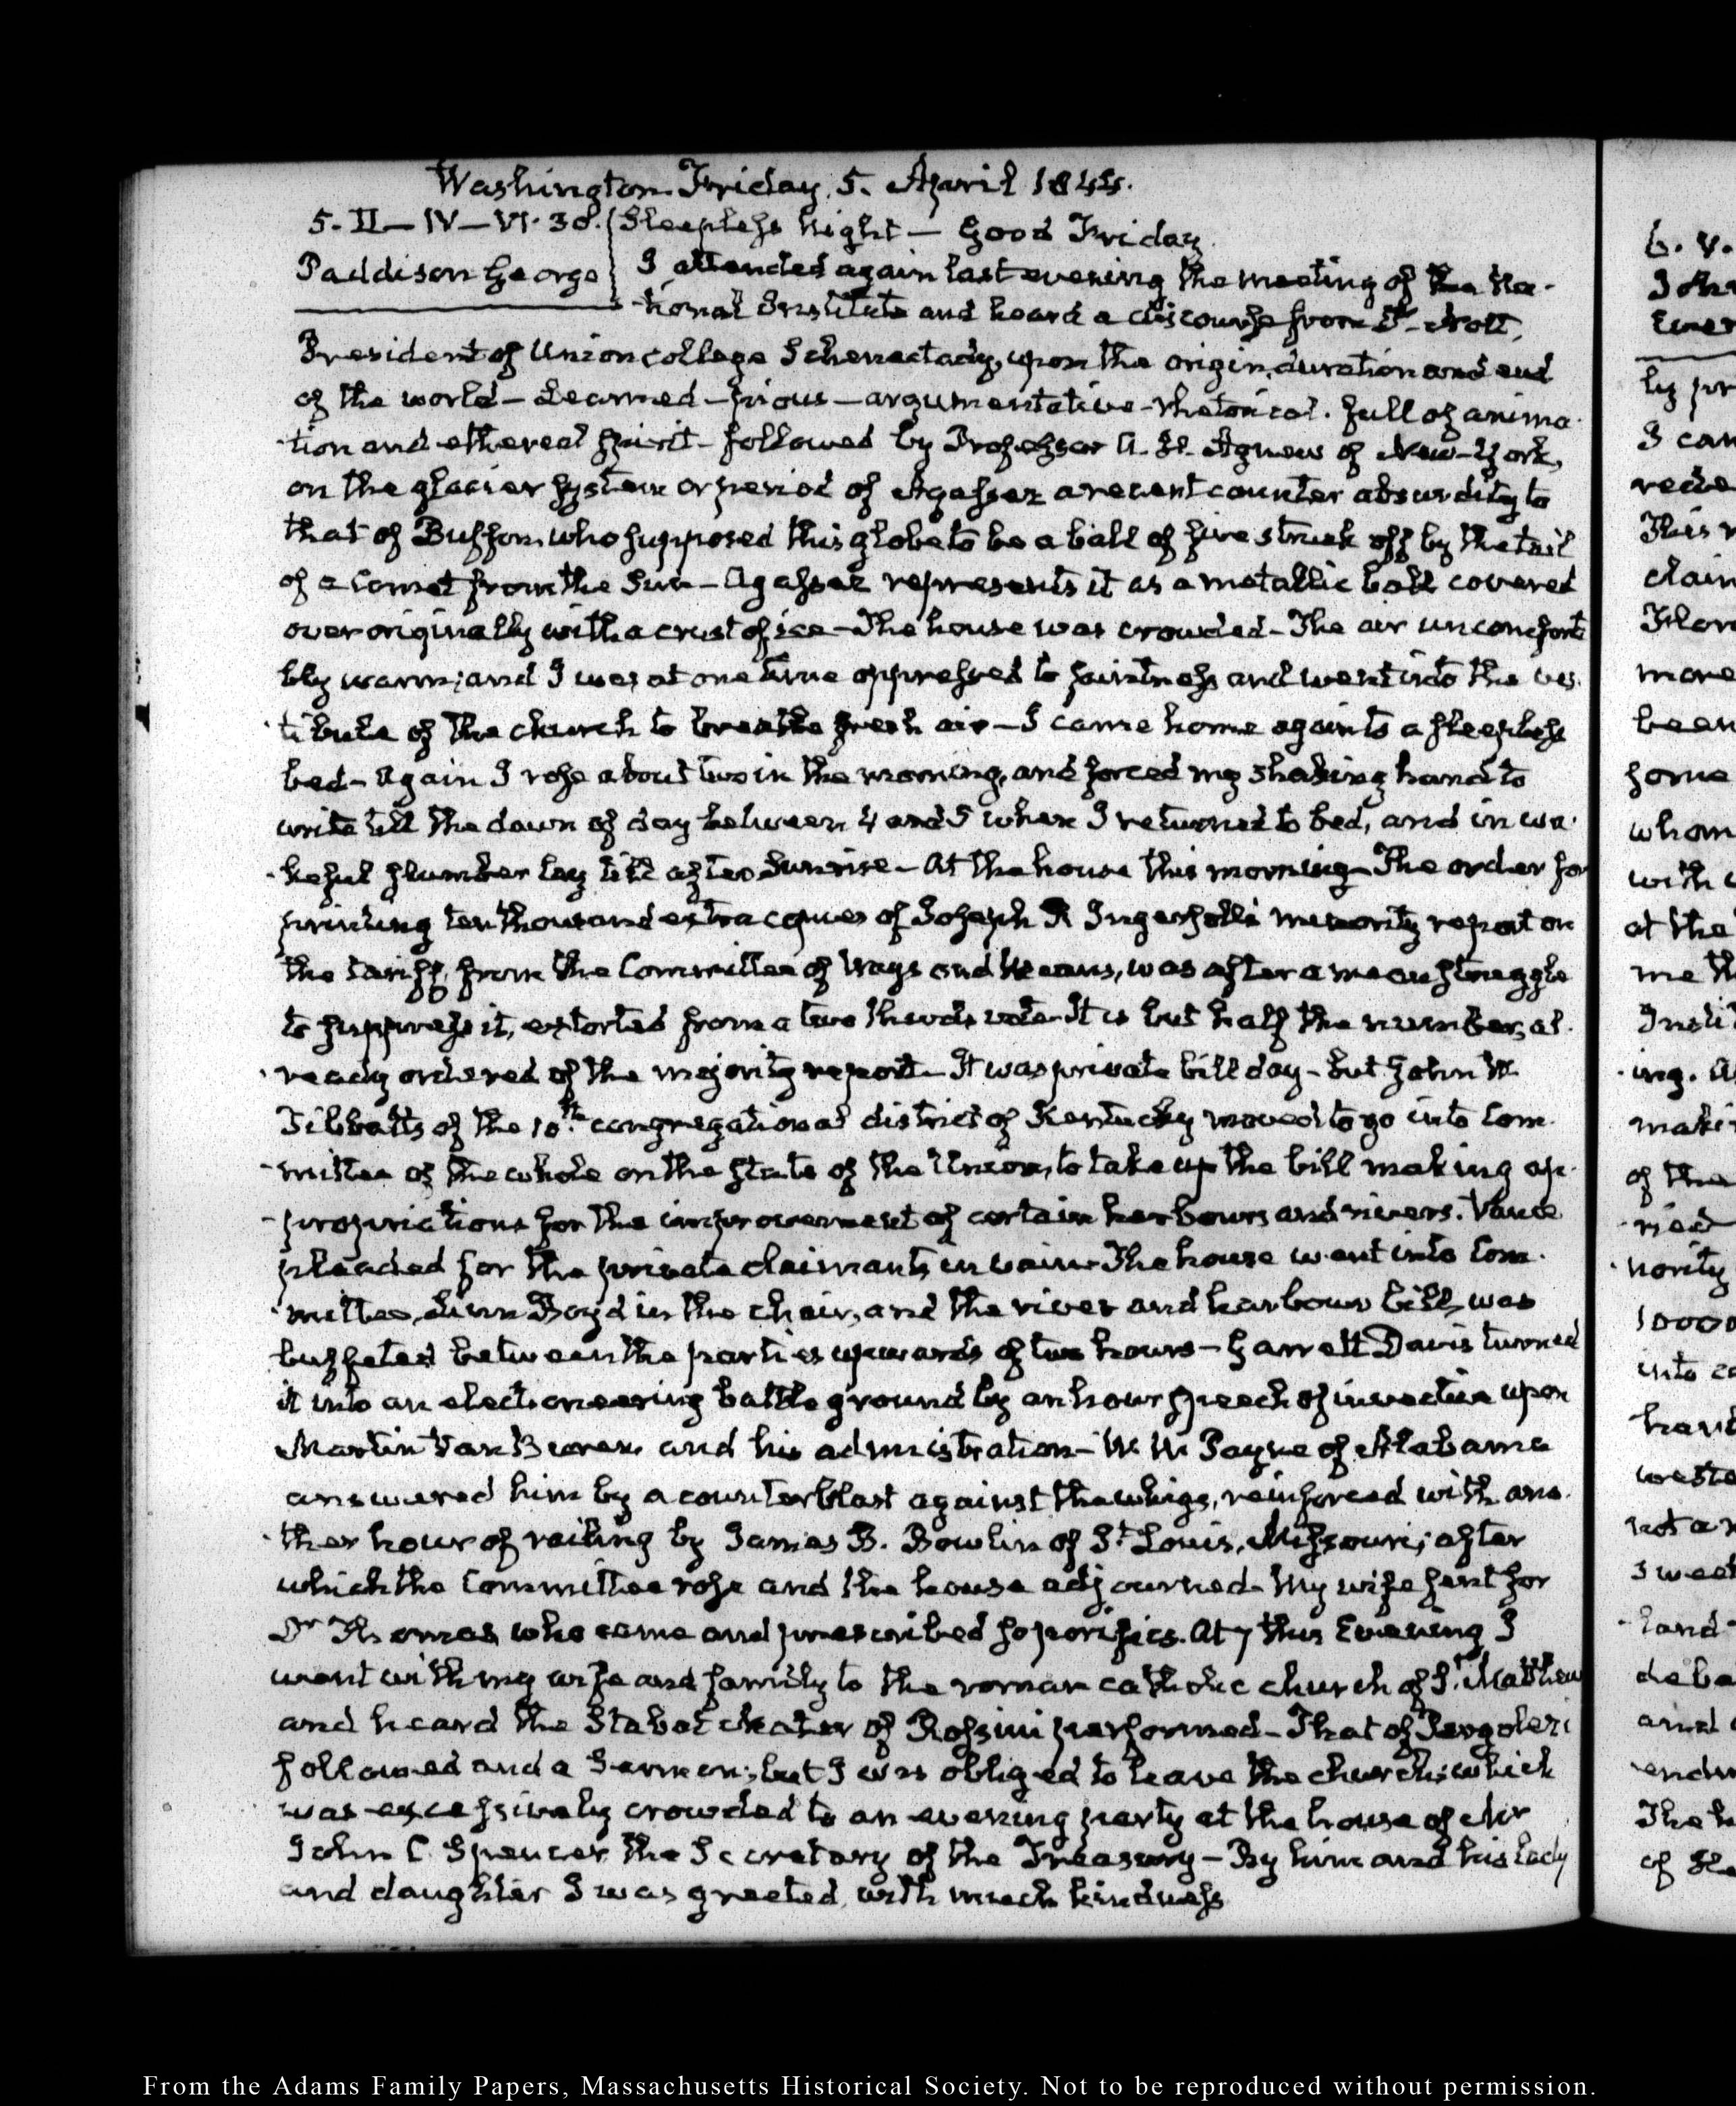 Washington. Friday. 5. April 1844.
5. II—IV—VI. 30. Sleepless night — Good Friday.
Paddison George I attended again last evening the meeting of the Na-
-tional Institute and heard a discourse from Dr Nott,
President of Union college Schenectady, upon the origin, duration and end
of the world — Learned — pious — argumentative — rhetorical. full of anima-
-tion and ethereal spirit — followed by Professor A. H. Agnew of New-York,
on the glacier system or period of Agassez a recent counter absurdity to
that of Buffon, who supposed this globe to be a ball of fire struck off by the tail
of a Comet from the Sun — Agassez represents it as a metallic ball covered
over originally with a crust of ice — The house was crowded — The air uncomforta
bly warm; and I was at one time oppressed to faintness and went into the ves-
-tibule of the church to breathe fresh air — I came home again to a sleepless
bed — Again I rose about two in the morning, and forced my shaking hand to
write till the dawn of day between 4 and 5 when I returned to bed, and in wa-
-keful slumber lay till after Sunrise — At the house this morning — The order for
printing ten thousand extra copies of Joseph R Ingersoll's minority report on
the tariff, from the Committee of Ways and Means, was after a mean struggle
to suppress it, extorted from a two thirds vote — It is but half the number, al-
-ready ordered of the majority report — It was private bill day — but John W
Tibbatts of the 10th. congregational district of Kentucky moved to go into Com-
-mittee of the whole on the state of the Union, to take up the bill making ap-
-propriations for the improvement of certain harbours and rivers. Vance
pleaded for the private claimants in vain — The house went into Com-
-mittee, Linn Boyd in the chair, and the river and harbour bill, was
buffeted between the parties upwards of two hours — Garrett Davis turned
it into an electioneering battle ground by an hour speech of invective upon
Martin Van Buren and his administration — W. W. Payne of Alabama
answered him by a counterblast against the whigs, reinforced with ano-
-ther hour of railing by James B. Bowlin of St. Louis, Missouri; after
which the Committee rose and the house adjourned — My wife sent for
Dr Thomas who came and prescribed soporifics. At 7 this Evening I
went with my wife and family to the roman catholic church of St. Matthew
and heard the Stabat Mater of Rossini performed — That of Pergolesi
followed and a Sermon; but I was obliged to leave the church; which
was excessively crowded to an evening party at the house of Mr
John C. Spencer, the Secretary of the Treasury — By him and his lady
and daughter I was greeted, with much kindness
From the Adams Family Papers, Massachusetts Historical Society. Not to be reproduced without permission.